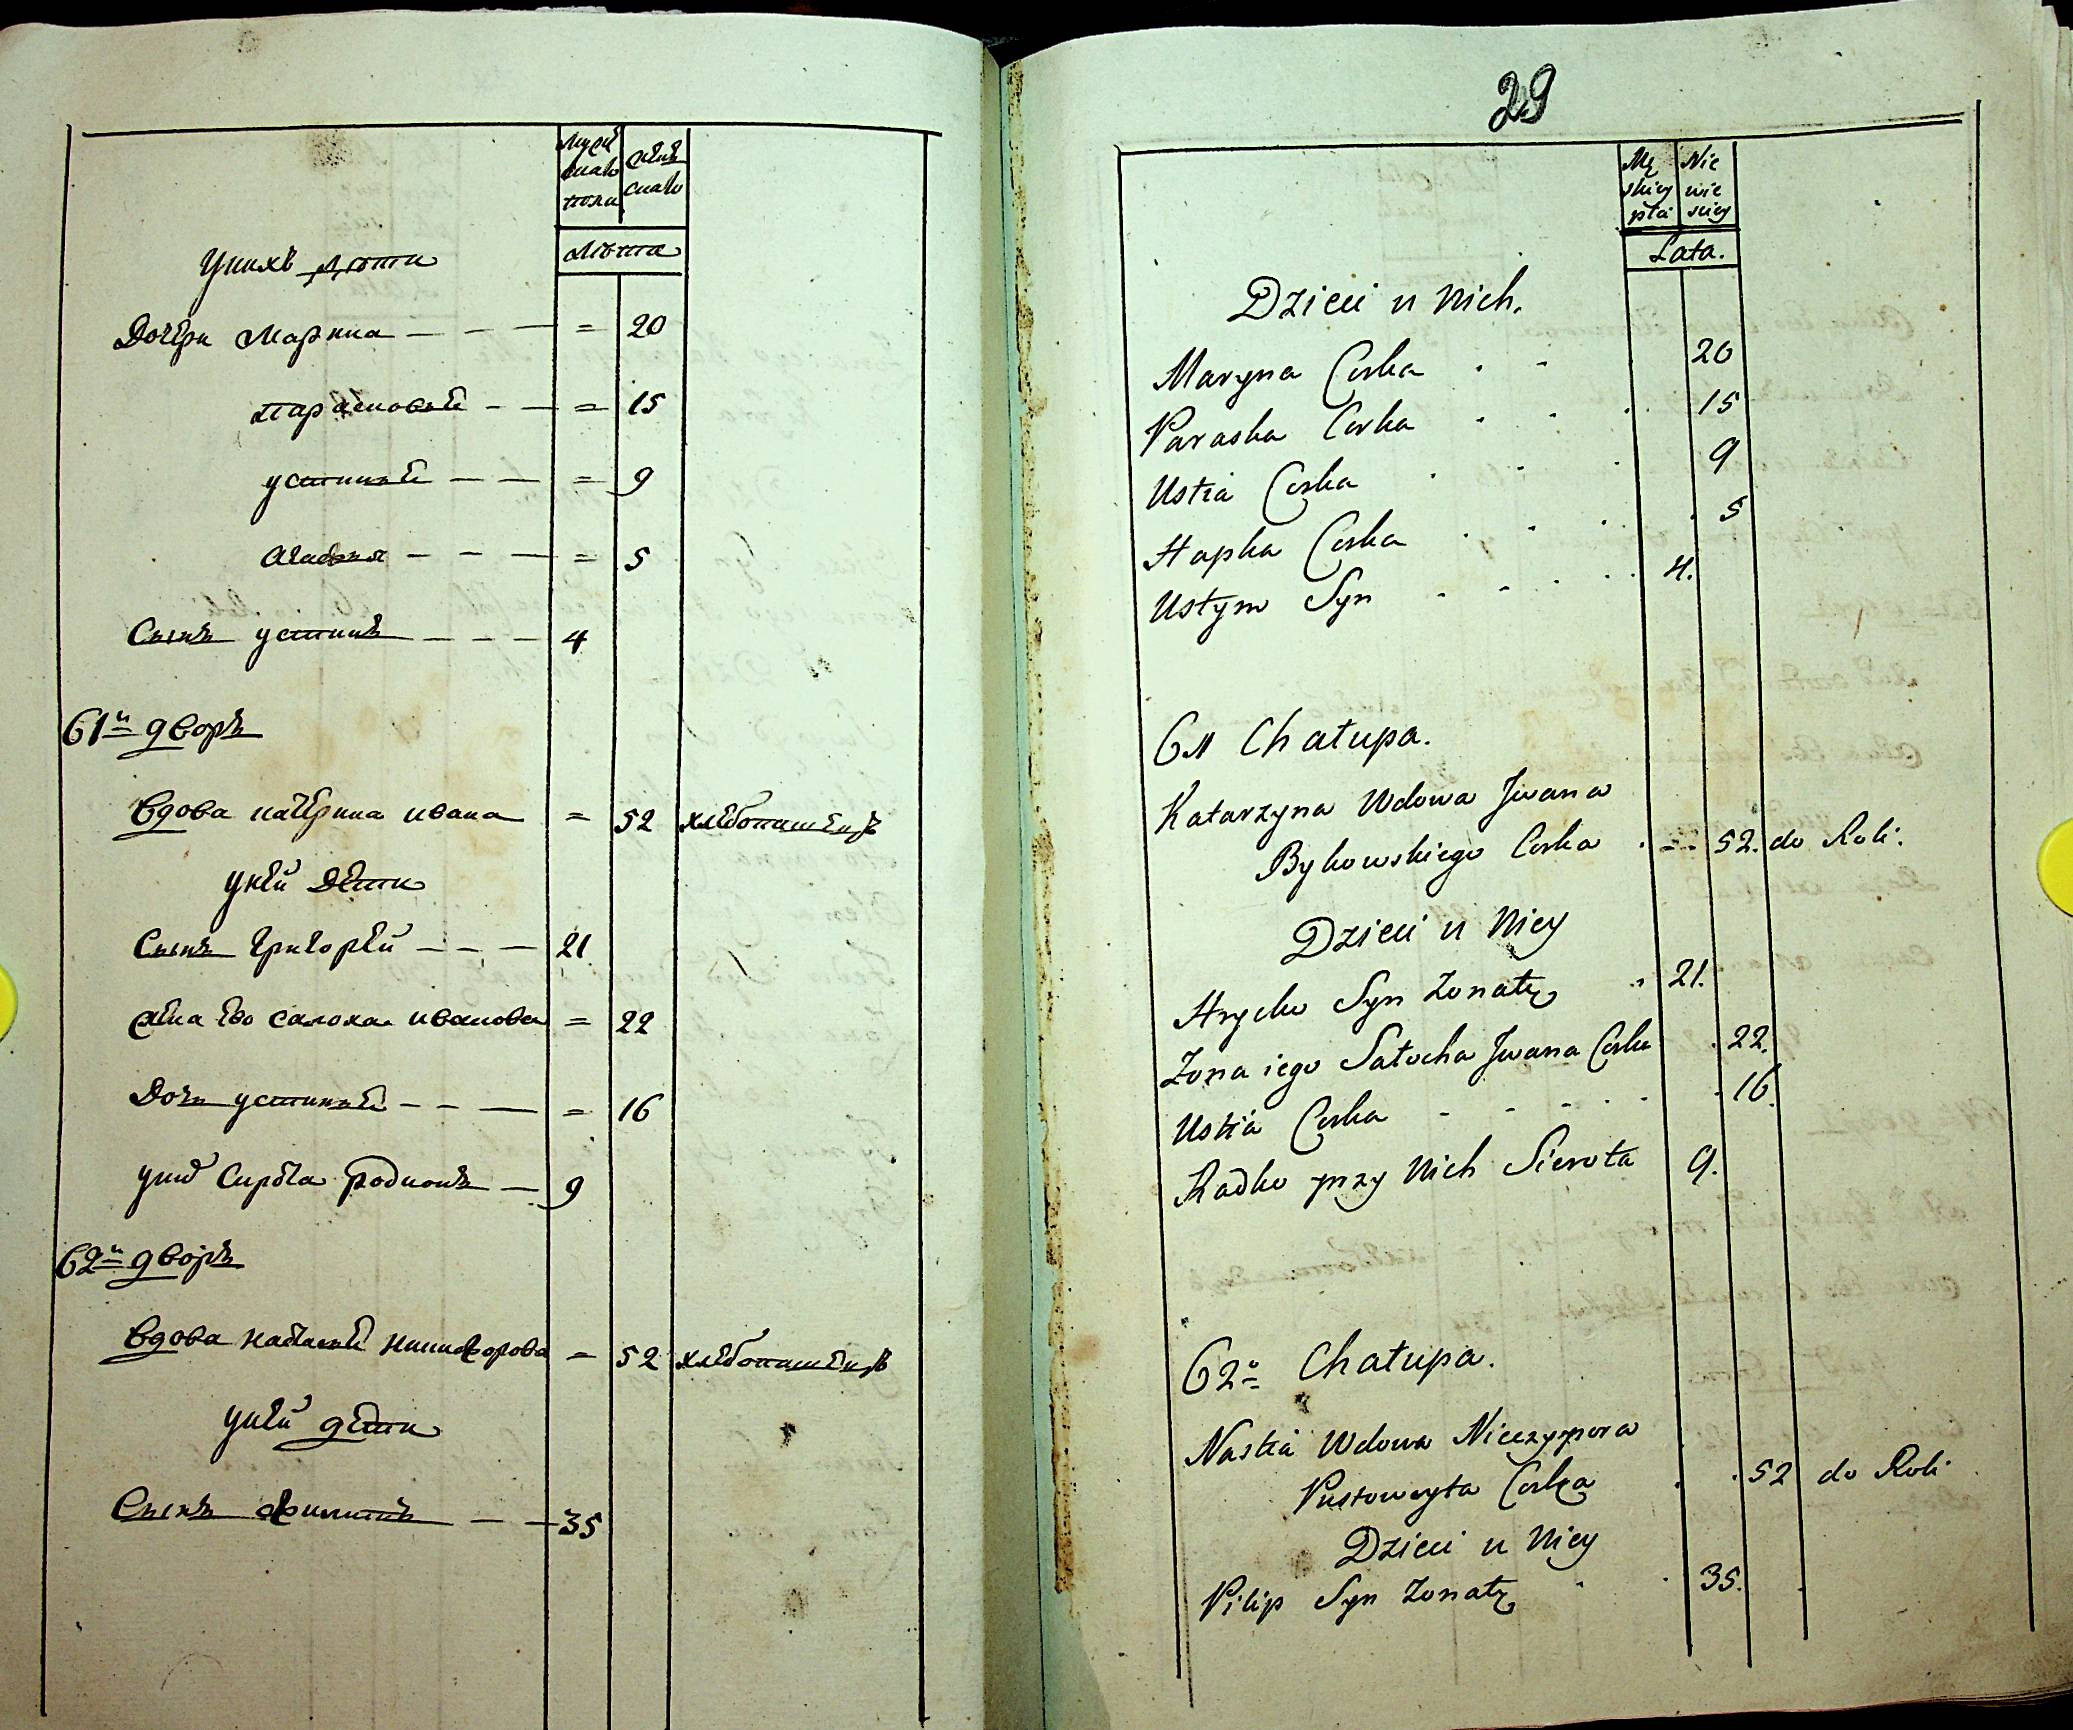 мужѣ
скаго
пола
женѣ
скаго
лѣта
унихъ дѣти
Дочери Марина — — — = 20
парасковѣя — — = 15
устинѣя — — = 9
агафия — — — = 5
Сынъ устинъ — — — 4
61й дворъ
вдова катерина ивана = 52 хлѣбопашецъ
унеи дети
Сынъ григореи — — — 21
жена ево салоха иванова = 22
Дочь устинья — — — = 16
униⷯ сирота родионъ — 9
62й дворъ
вдова настасья никифорова = 52 хлѣбопашецъ
унеи дети
Сынъ филипъ — — 35
29
Mę
skiey
płci
Nie
wie
sciey
Lata.
Dzieci u Nich.
Maryna Corka . . 20
Paraska Corka . . . 15
Ustia Corka . . . 9
Hapka Corka . . . . 5
Ustym Syn . . . . 4.
61 Chałupa.
Katarzyna Wdowa Jwana
Bykowskiego Corka . 52. do Roli.
Dzieci u Niey
Hryćko Syn Żonaty . 21.
Żona iego Sałocha Jwana Corka . 22.
Ustia Corka - - - . . . 16.
Radko przy Nich Sierota 9.
62a Chałupa.
Nastia Wdowa Niczypora
Pustowoyta Corka . . 52 do Roli
Dzieci u Niey
Pilip Syn Żonaty . . 35.